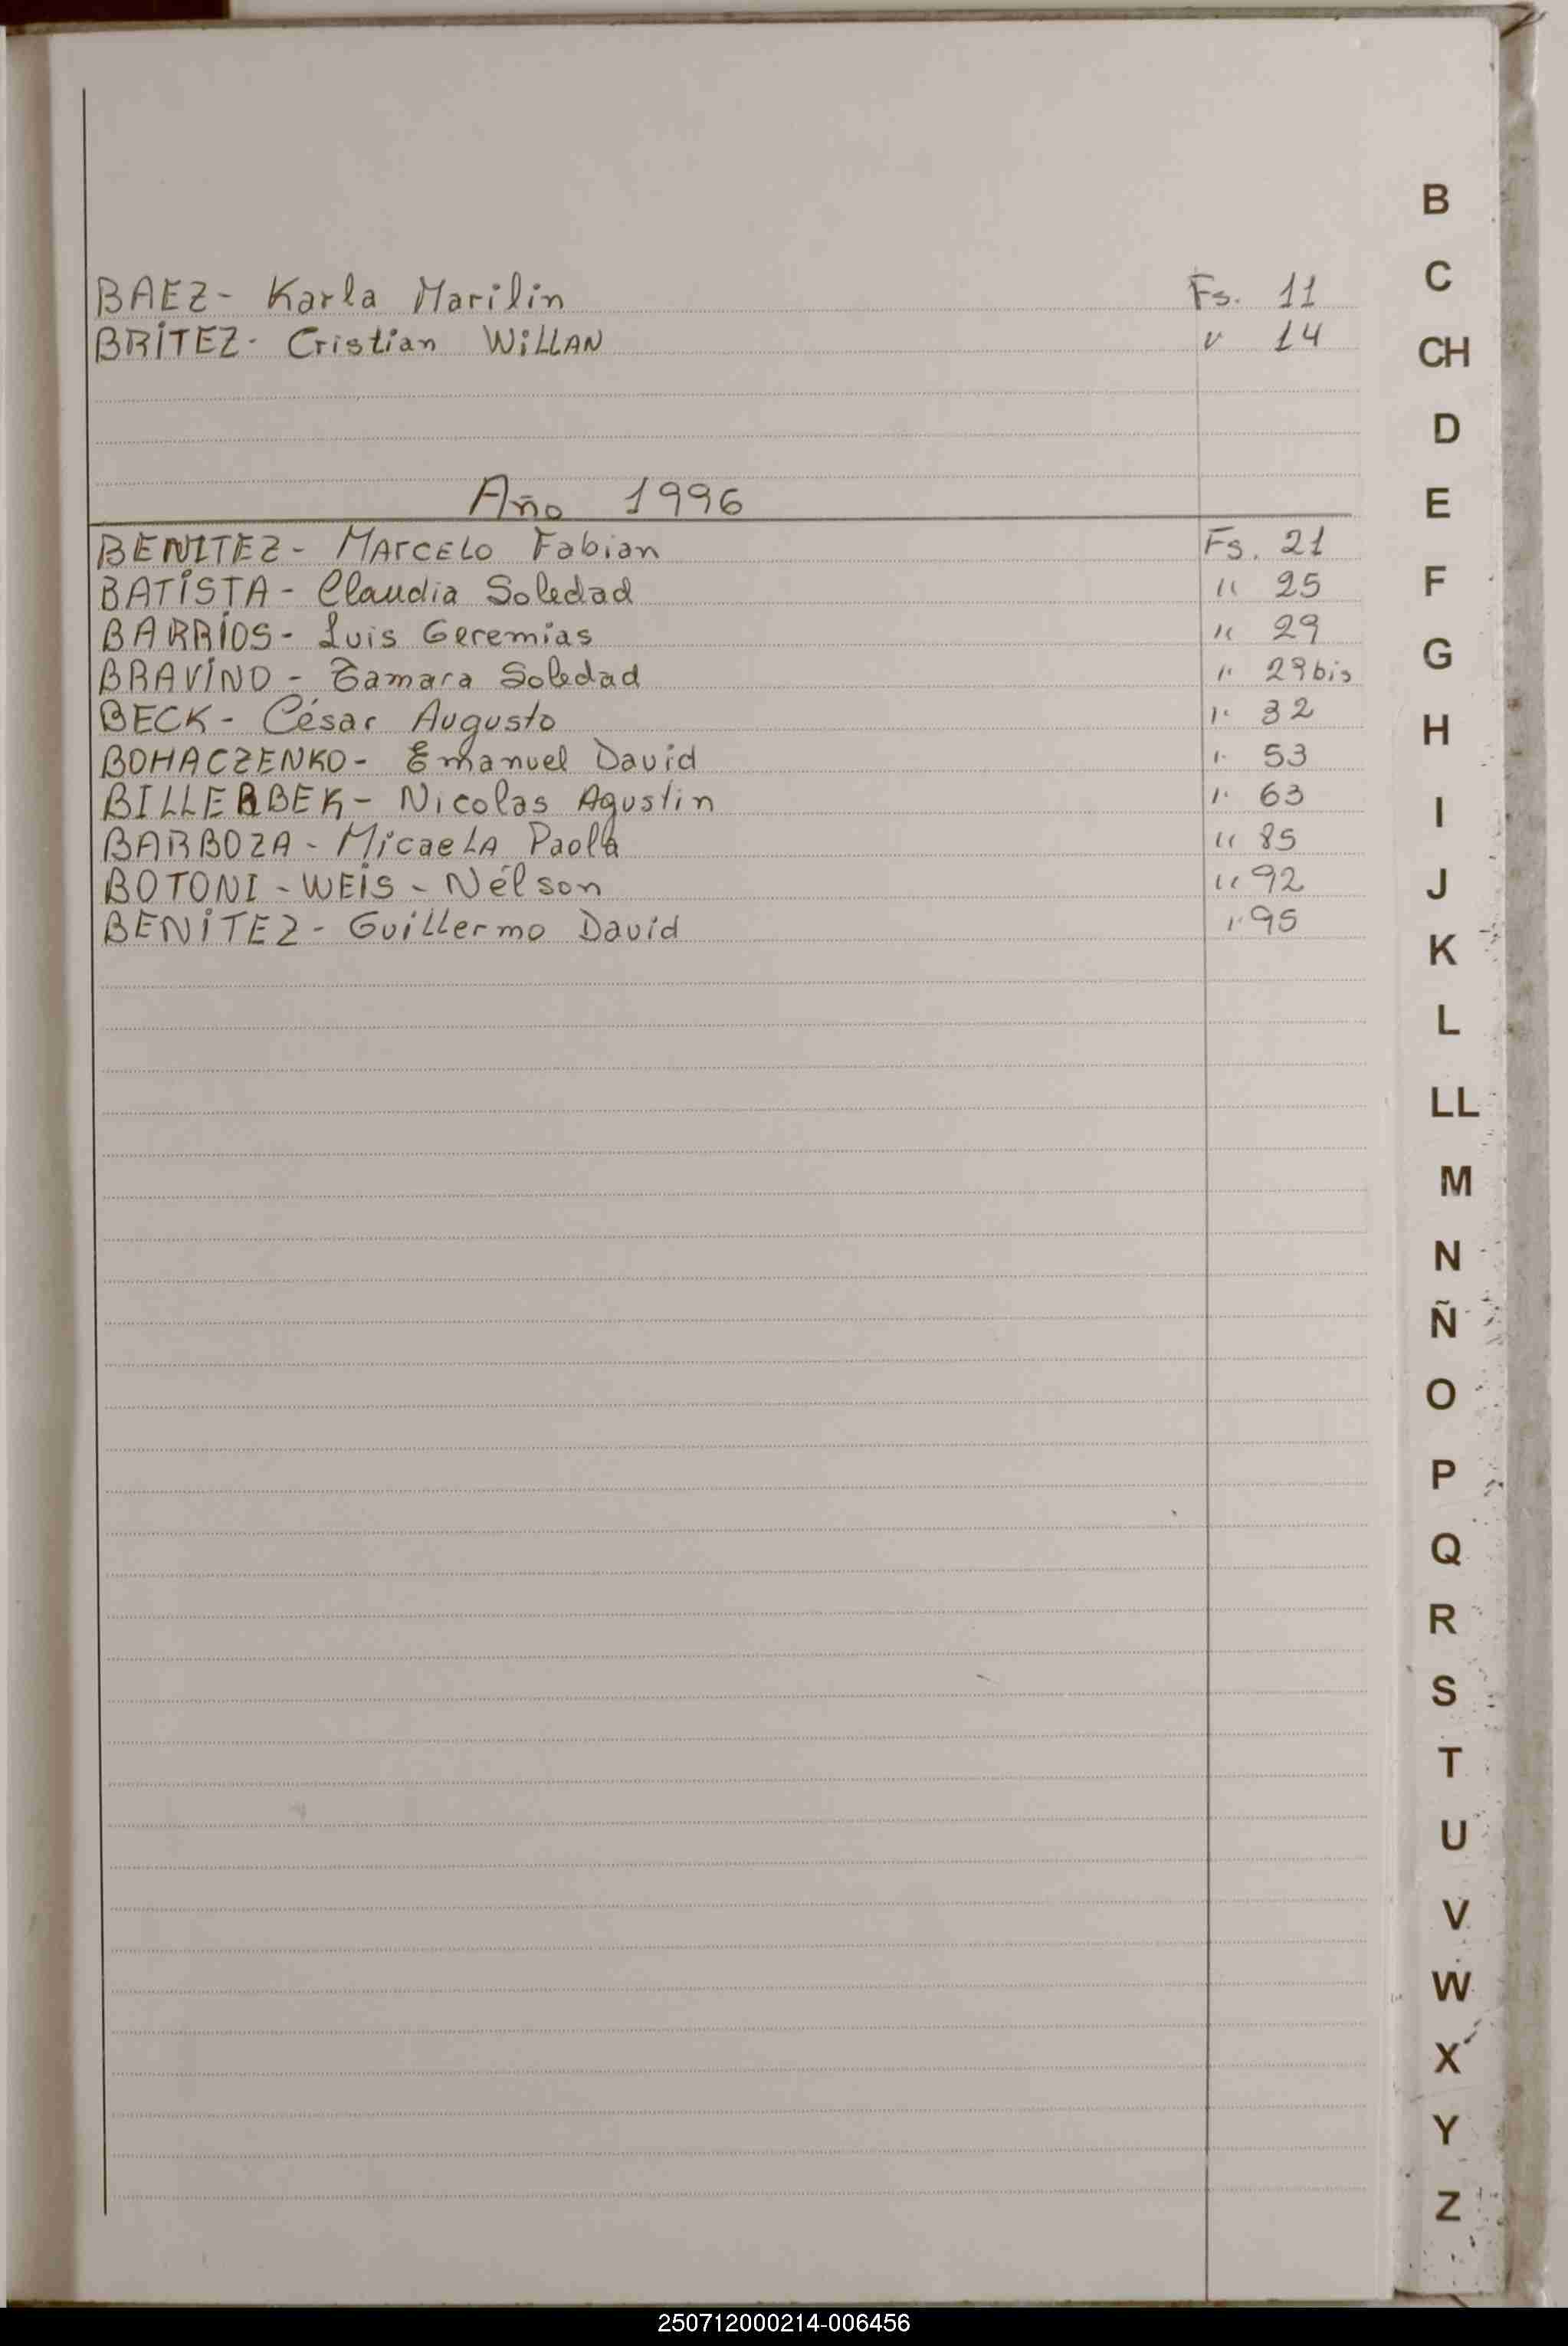 BAEZ - Karla Marilin Fs. 11
BRITEZ - Cristian WiLLAN " 14
Año 1996
BENITEZ - MARCELO Fabian Fs. 21
BATISTA - Claudia Soledad " 25
BARRIOS - Luis Geremias " 29
BRAVINO - Tamara Soledad " 29 bis
BECK - César Augusto " 32
BOHACZENKO - Emanuel David " 53
BILLERBEK - Nicolas Agustin " 63
BARBOZA - MicaeLA Paola " 85
BOTONI - WEIS - Nélson " 92
BENITEZ - Guillermo David " 95
B
C
CH
D
E
F
G
H
I
J
K
L
LL
M
N
Ñ
O
P
Q
R
S
T
U
V
W
X
Y
Z
250712000214-006456